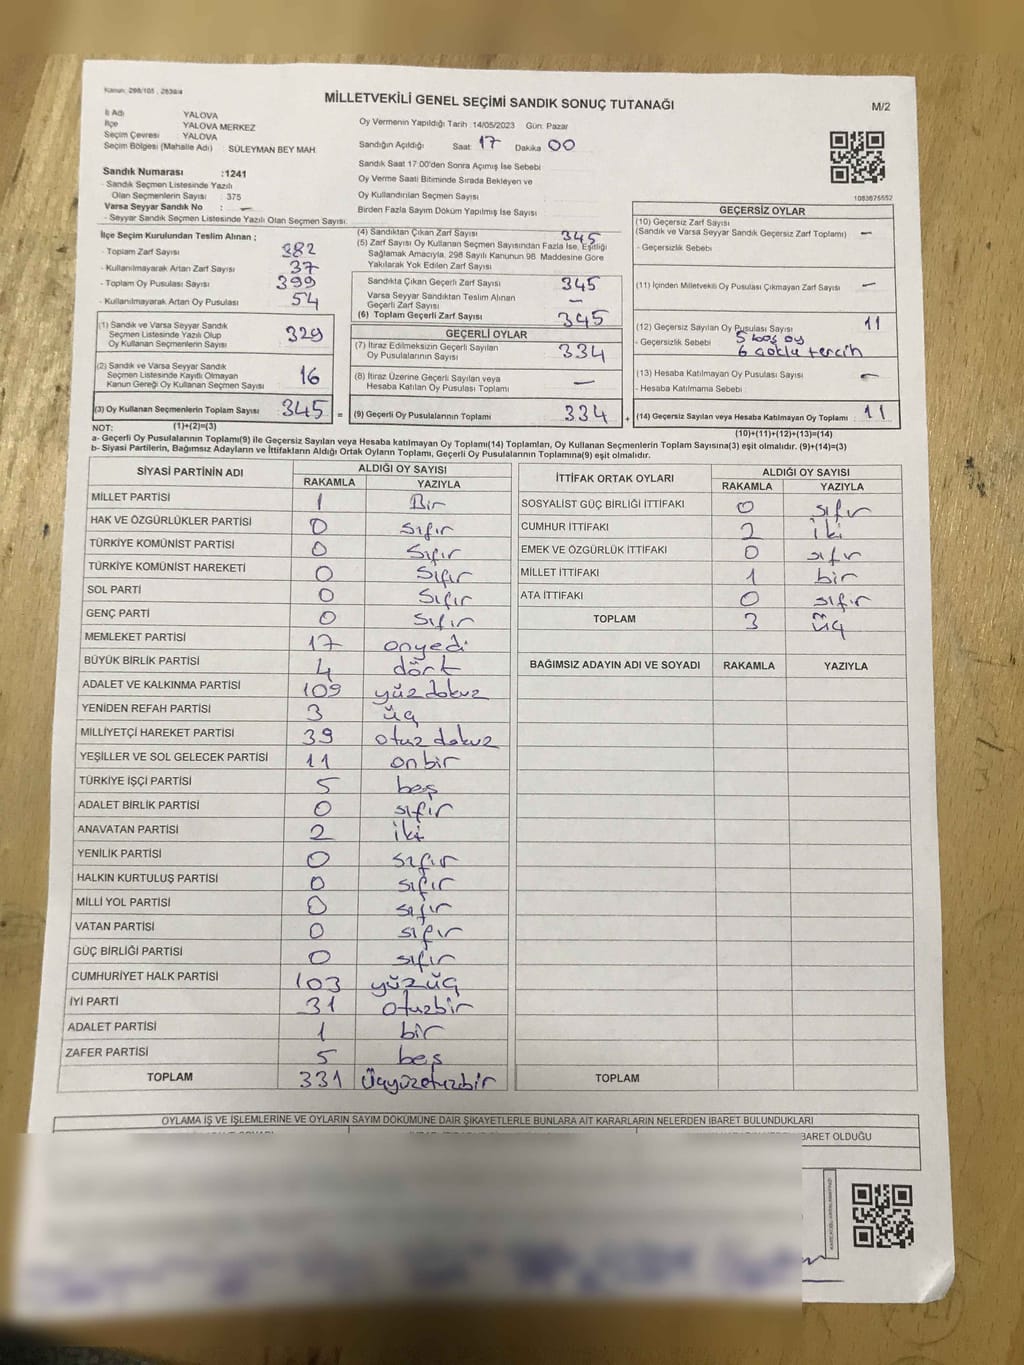 Kanun: 298/105 , 2839/4
MİLLETVEKİLİ GENEL SEÇİMİ SANDIK SONUÇ TUTANAĞI
M/2
İl Adı YALOVA
İlçe YALOVA MERKEZ
Seçim Çevresi YALOVA
Seçim Bölgesi (Mahalle Adı) SÜLEYMAN BEY MAH.
Oy Vermenin Yapıldığı Tarih :14/05/2023 Gün: Pazar
Sandığın Açıldığı Saat: 17 Dakika 00
Sandık Saat 17:00'den Sonra Açımış İse Sebebi
Oy Verme Saati Bitiminde Sırada Bekleyen ve
Oy Kullandırılan Seçmen Sayısı
Birden Fazla Sayım Döküm Yapılmış İse Sayısı
Sandık Numarası :1241
- Sandık Seçmen Listesinde Yazılı
Olan Seçmenlerin Sayısı : 375
Varsa Seyyar Sandık No : —
- Seyyar Sandık Seçmen Listesinde Yazılı Olan Seçmen Sayısı:
1083675552
İlçe Seçim Kurulundan Teslim Alınan ;
- Toplam Zarf Sayısı 382
- Kullanılmayarak Artan Zarf Sayısı 37
- Toplam Oy Pusulası Sayısı 399
- Kullanılmayarak Artan Oy Pusulası 54
(1) Sandık ve Varsa Seyyar Sandık
Seçmen Listesinde Yazılı Olup
Oy Kullanan Seçmenlerin Sayısı 329
(2) Sandık ve Varsa Seyyar Sandık
Seçmen Listesinde Kayıtlı Olmayan
Kanun Gereği Oy Kullanan Seçmen Sayısı 16
(3) Oy Kullanan Seçmenlerin Toplam Sayısı 345 =
(4) Sandıktan Çıkan Zarf Sayısı 345
(5) Zarf Sayısı Oy Kullanan Seçmen Sayısından Fazla İse, Eşitliği
Sağlamak Amacıyla, 298 Sayılı Kanunun 98 Maddesine Göre
Yakılarak Yok Edilen Zarf Sayısı
Sandıkta Çıkan Geçerli Zarf Sayısı 345
Varsa Seyyar Sandıktan Teslim Alınan
Geçerli Zarf Sayısı —
(6) Toplam Geçerli Zarf Sayısı 345
GEÇERLİ OYLAR
(7) İtiraz Edilmeksizin Geçerli Sayılan
Oy Pusulalarının Sayısı 334
(8) İtiraz Üzerine Geçerli Sayılan veya
Hesaba Katılan Oy Pusulası Toplamı —
(9) Geçerli Oy Pusulalarının Toplamı 334 +
GEÇERSİZ OYLAR
(10) Geçersiz Zarf Sayısı
(Sandık ve Varsa Seyyar Sandık Geçersiz Zarf Toplamı) —
- Geçersizlik Sebebi
(11) İçinden Milletvekili Oy Pusulası Çıkmayan Zarf Sayısı —
(12) Geçersiz Sayılan Oy Pusulası Sayısı 11
- Geçersizlik Sebebi 5 boş oy
6 çoklu tercih
(13) Hesaba Katılmayan Oy Pusulası Sayısı —
- Hesaba Katılmama Sebebi
(14) Geçersiz Sayılan veya Hesaba Katılmayan Oy Toplamı 11
NOT: (1)+(2)=(3)
(10)+(11)+(12)+(13)=(14)
a- Geçerli Oy Pusulalarının Toplamı(9) ile Geçersiz Sayılan veya Hesaba katılmayan Oy Toplamı(14) Toplamları, Oy Kullanan Seçmenlerin Toplam Sayısına(3) eşit olmalıdır. (9)+(14)=(3)
b- Siyasi Partilerin, Bağımsız Adayların ve İttifakların Aldığı Ortak Oyların Toplamı, Geçerli Oy Pusulalarının Toplamına(9) eşit olmalıdır.
SİYASİ PARTİNİN ADI ALDIĞI OY SAYISI
RAKAMLA YAZIYLA
MİLLET PARTİSİ 1 Bir
HAK VE ÖZGÜRLÜKLER PARTİSİ 0 sıfır
TÜRKİYE KOMÜNİST PARTİSİ 0 Sıfır
TÜRKİYE KOMÜNİST HAREKETİ 0 Sıfır
SOL PARTİ 0 Sıfır
GENÇ PARTİ 0 Sıfır
MEMLEKET PARTİSİ 17 onyedi
BÜYÜK BİRLİK PARTİSİ 4 dört
ADALET VE KALKINMA PARTİSİ 109 yüz dokuz
YENİDEN REFAH PARTİSİ 3 üç
MİLLİYETÇİ HAREKET PARTİSİ 39 otuz dokuz
YEŞİLLER VE SOL GELECEK PARTİSİ 11 onbir
TÜRKİYE İŞÇİ PARTİSİ 5 beş
ADALET BİRLİK PARTİSİ 0 sıfır
ANAVATAN PARTİSİ 2 iki
YENİLİK PARTİSİ 0 sıfır
HALKIN KURTULUŞ PARTİSİ 0 sıfır
MİLLİ YOL PARTİSİ 0 sıfır
VATAN PARTİSİ 0 sıfır
GÜÇ BİRLİĞİ PARTİSİ 0 sıfır
CUMHURİYET HALK PARTİSİ 103 yüzüç
İYİ PARTİ 31 otuzbir
ADALET PARTİSİ 1 bir
ZAFER PARTİSİ 5 beş
TOPLAM 331 Üçyüzotuzbir
İTTİFAK ORTAK OYLARI ALDIĞI OY SAYISI
RAKAMLA YAZIYLA
SOSYALİST GÜÇ BİRLİĞİ İTTİFAKI 0 sıfır
CUMHUR İTTİFAKI 2 iki
EMEK VE ÖZGÜRLÜK İTTİFAKI 0 sıfır
MİLLET İTTİFAKI 1 bir
ATA İTTİFAKI 0 sıfır
TOPLAM 3 üç
BAĞIMSIZ ADAYIN ADI VE SOYADI RAKAMLA YAZIYLA
TOPLAM
OYLAMA İŞ VE İŞLEMLERİNE VE OYLARIN SAYIM DÖKÜMÜNE DAİR ŞİKAYETLERLE BUNLARA AİT KARARLARIN NELERDEN İBARET BULUNDUKLARI
BARET OLDUĞU